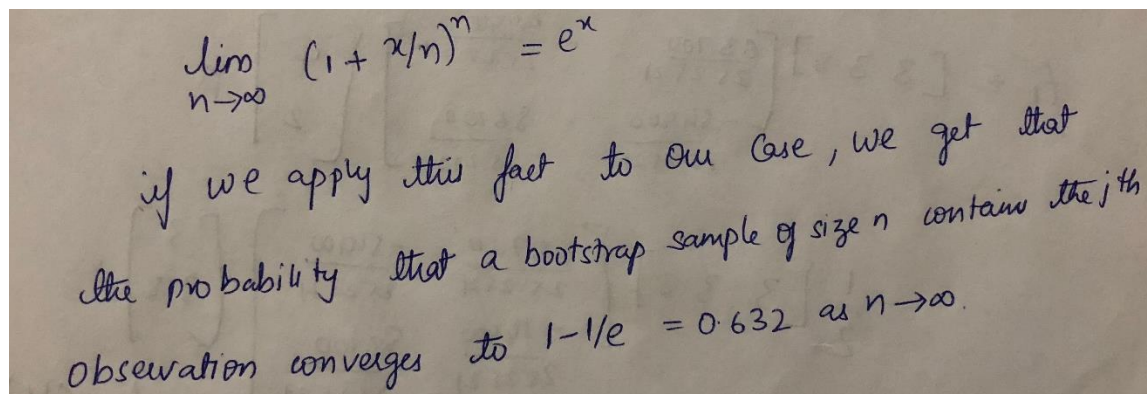 lim (1 + x/n)^n = e^x
n→∞
if we apply this fact to our case, we get that
the probability that a bootstrap sample of size n contains the jth
observation converges to 1-1/e = 0.632 as n→∞.